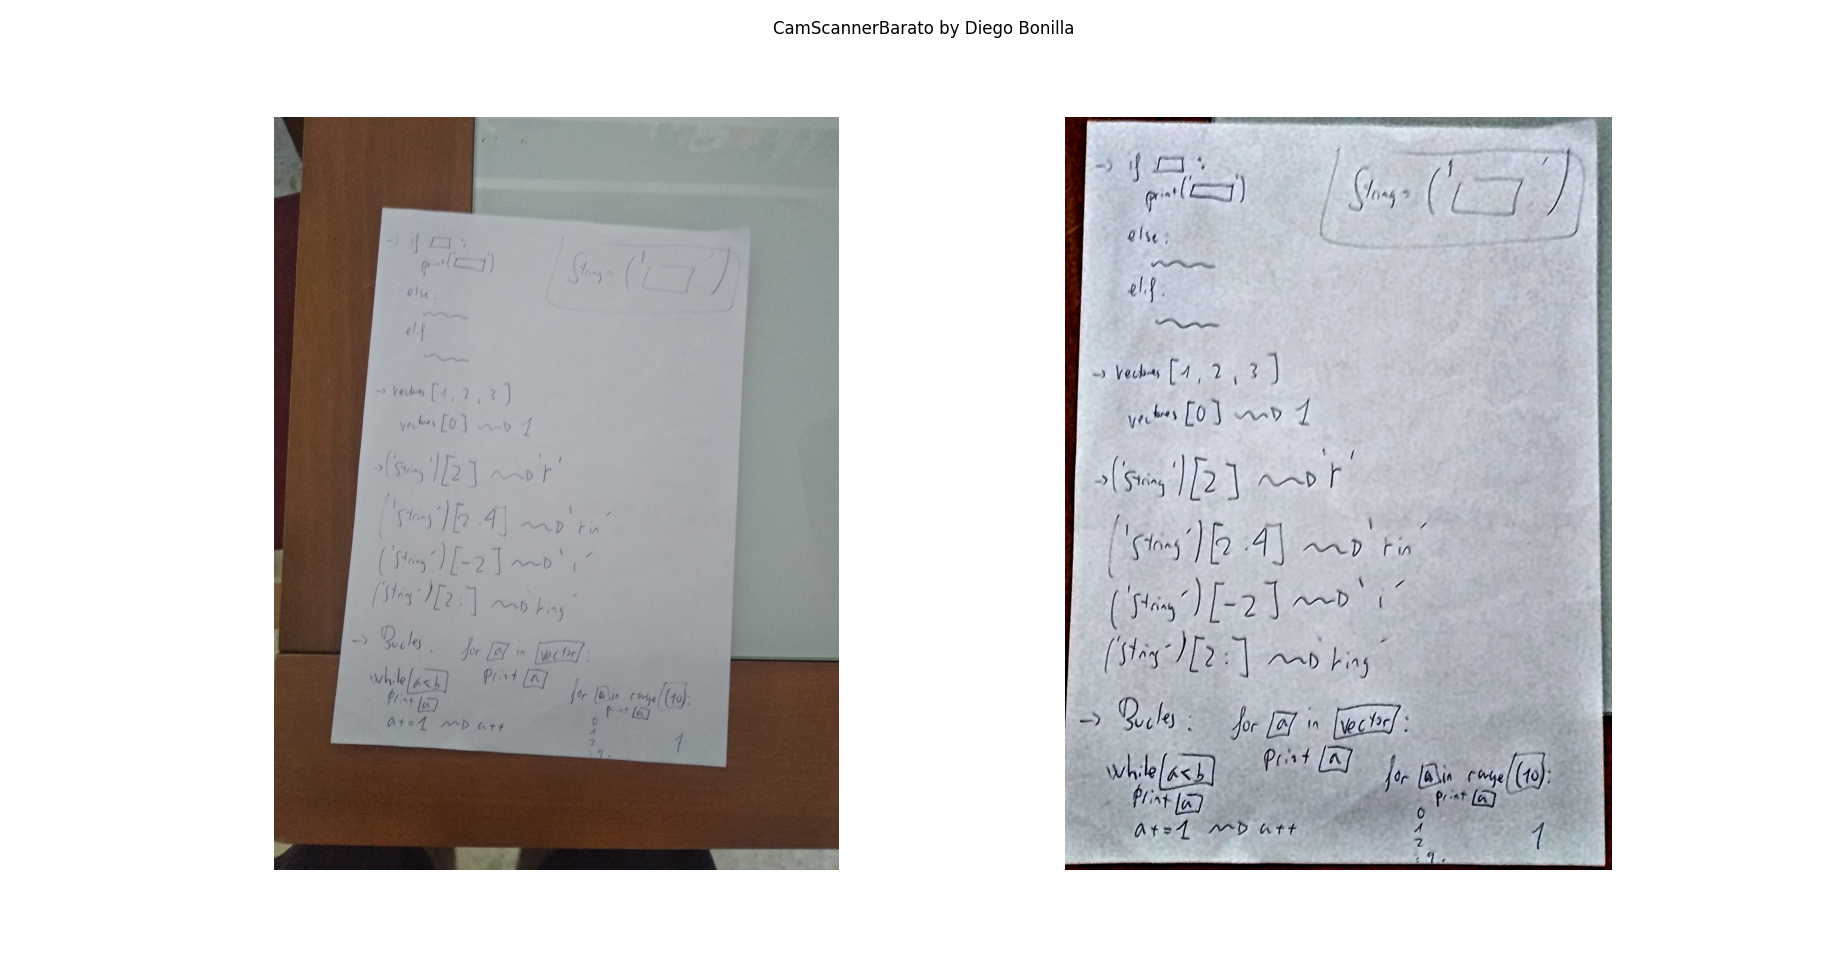 CamScannerBarato by Diego Bonilla
→ if □ :
print('□')
String = ('□')
else:
elif:
→ vectores [1, 2, 3]
vectores [0] ⟿ 1
→ ('string')[2] ⟿ 'r'
('string')[2:4] ⟿ 'rin'
('string')[-2] ⟿ 'i'
('string')[2:] ⟿ 'ring'
→ Bucles: for a in vector:
print a
while a<b
print a
a+=1 ⟿ a++
for a in range (10):
print a
0
1
2
: 9.
1
→ if □ :
print('□')
String = ('□')
else:
elif:
→ vectores [1, 2, 3]
vectores [0] ⟿ 1
→ ('string')[2] ⟿ 'r'
('string')[2:4] ⟿ 'rin'
('string')[-2] ⟿ 'i'
('string')[2:] ⟿ 'ring'
→ Bucles: for a in vector:
print a
while a<b
print a
a+=1 ⟿ a++
for a in range (10):
print a
0
1
2
: 9.
1